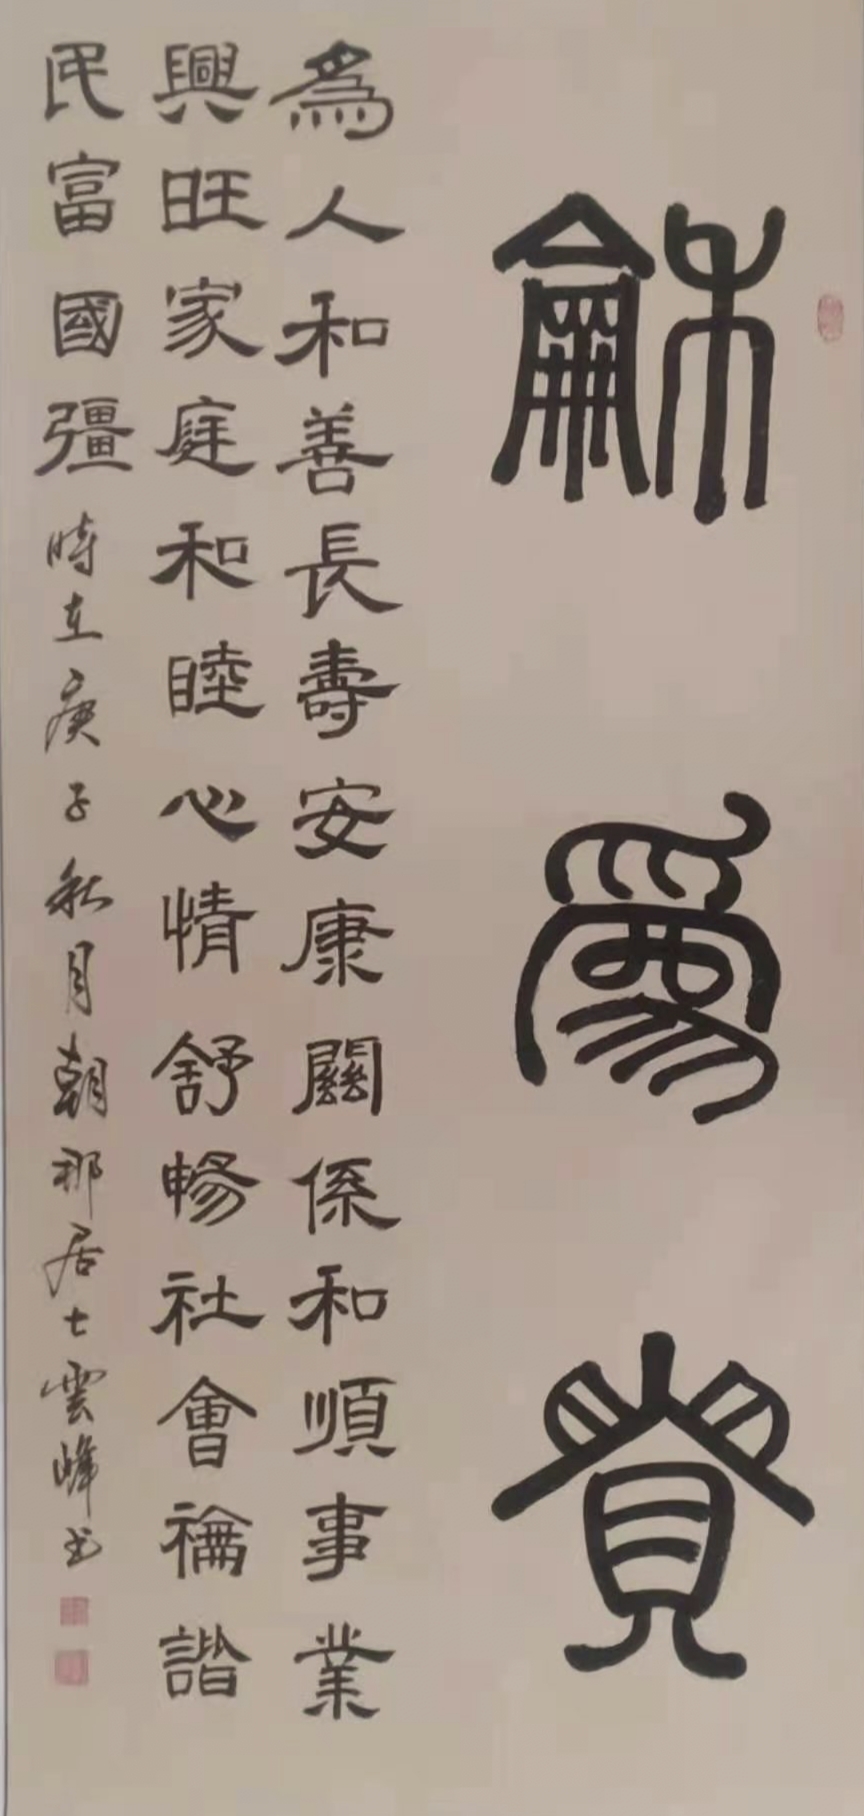 龢為貴
為人和善長壽安康關係和順事業
興旺家庭和睦心情舒暢社會龢諧
民富國彊時在庚子秋月朝那居士雲峰书